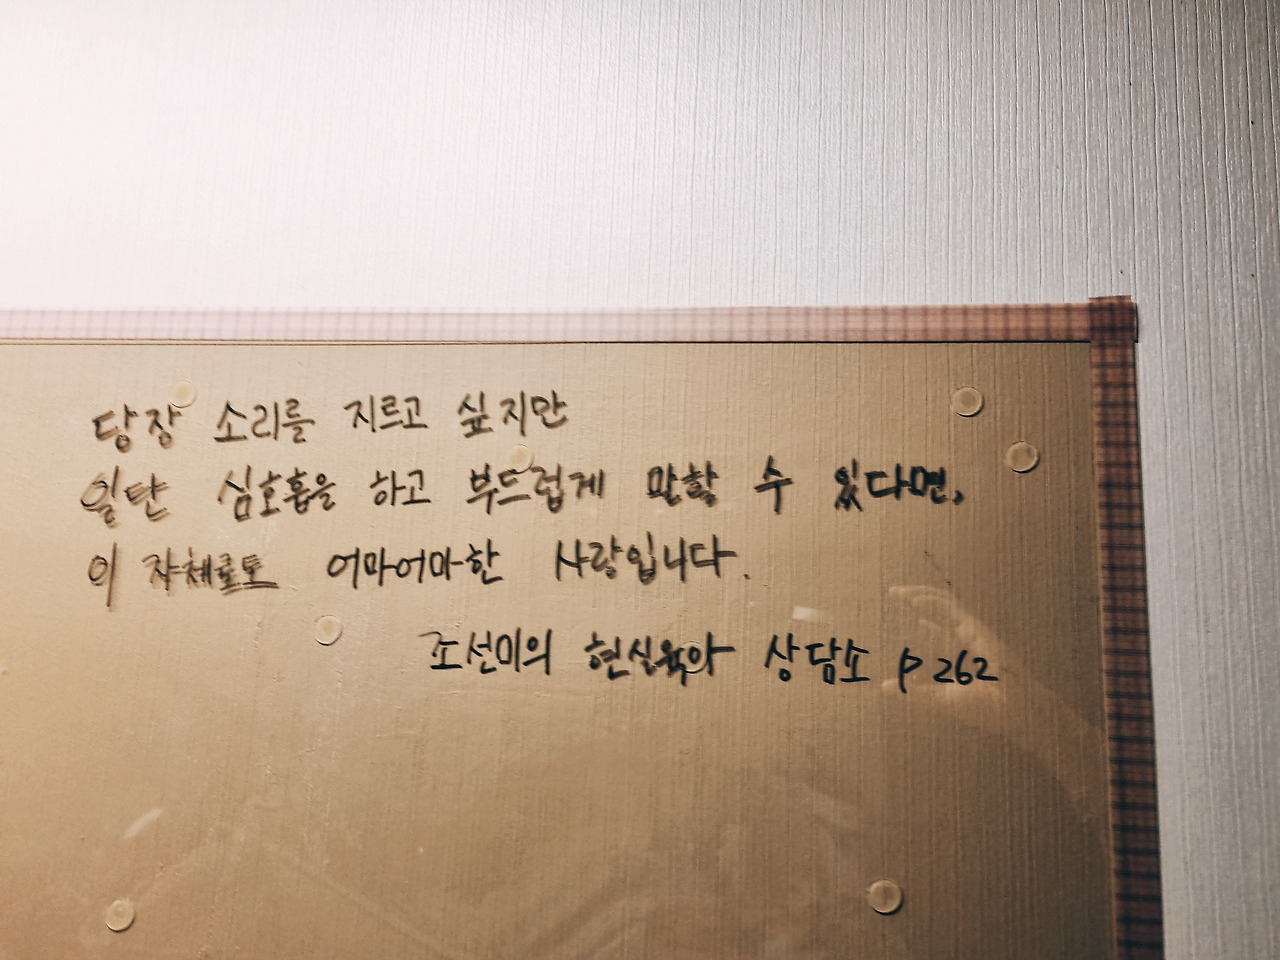 당장 소리를 지르고 싶지만
일단 심호흡을 하고 부드럽게 말할 수 있다면,
이 자체로도 어마어마한 사랑입니다.
조선미의 현실육아 상담소 p 262